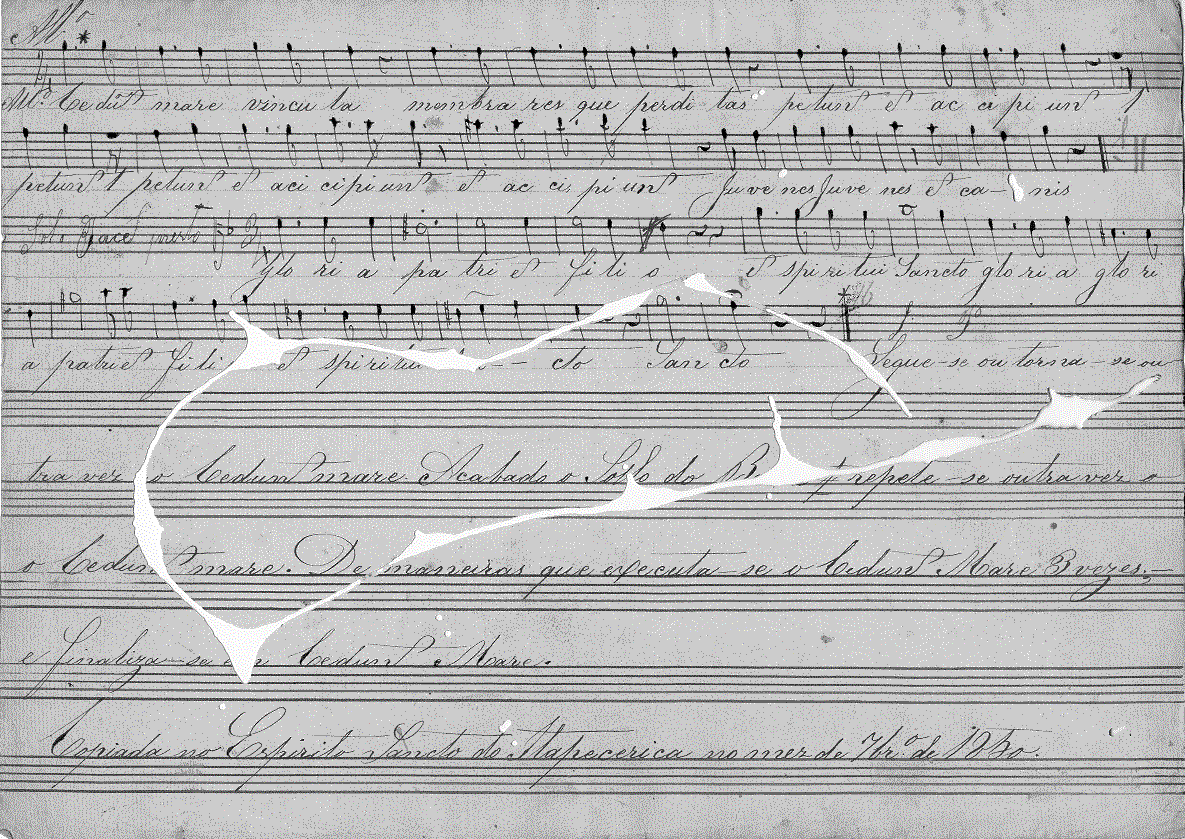 All.o
All.o Cedunt mare vincula membra resque perditas petunt et accipiunt
petunt petunt et acicipiunt et accipiunt Juvenes Juvenes et canis
Solo Gloria patri et filio et spiritui Sancto gloria glori
a patri et fili et spiritui cto Sancto Segue-se ou torna-se ou
tra vez o Cedunt mare Acabado o Sollo do repete-se outra vez o
o Cedunt mare. De maneiras que executa-se o Cedunt Mare 3 vezes,
e finaliza-se Cedunt Mare.
Copiada no Espirito Sancto do Itapecerica no mez de 7br.o de